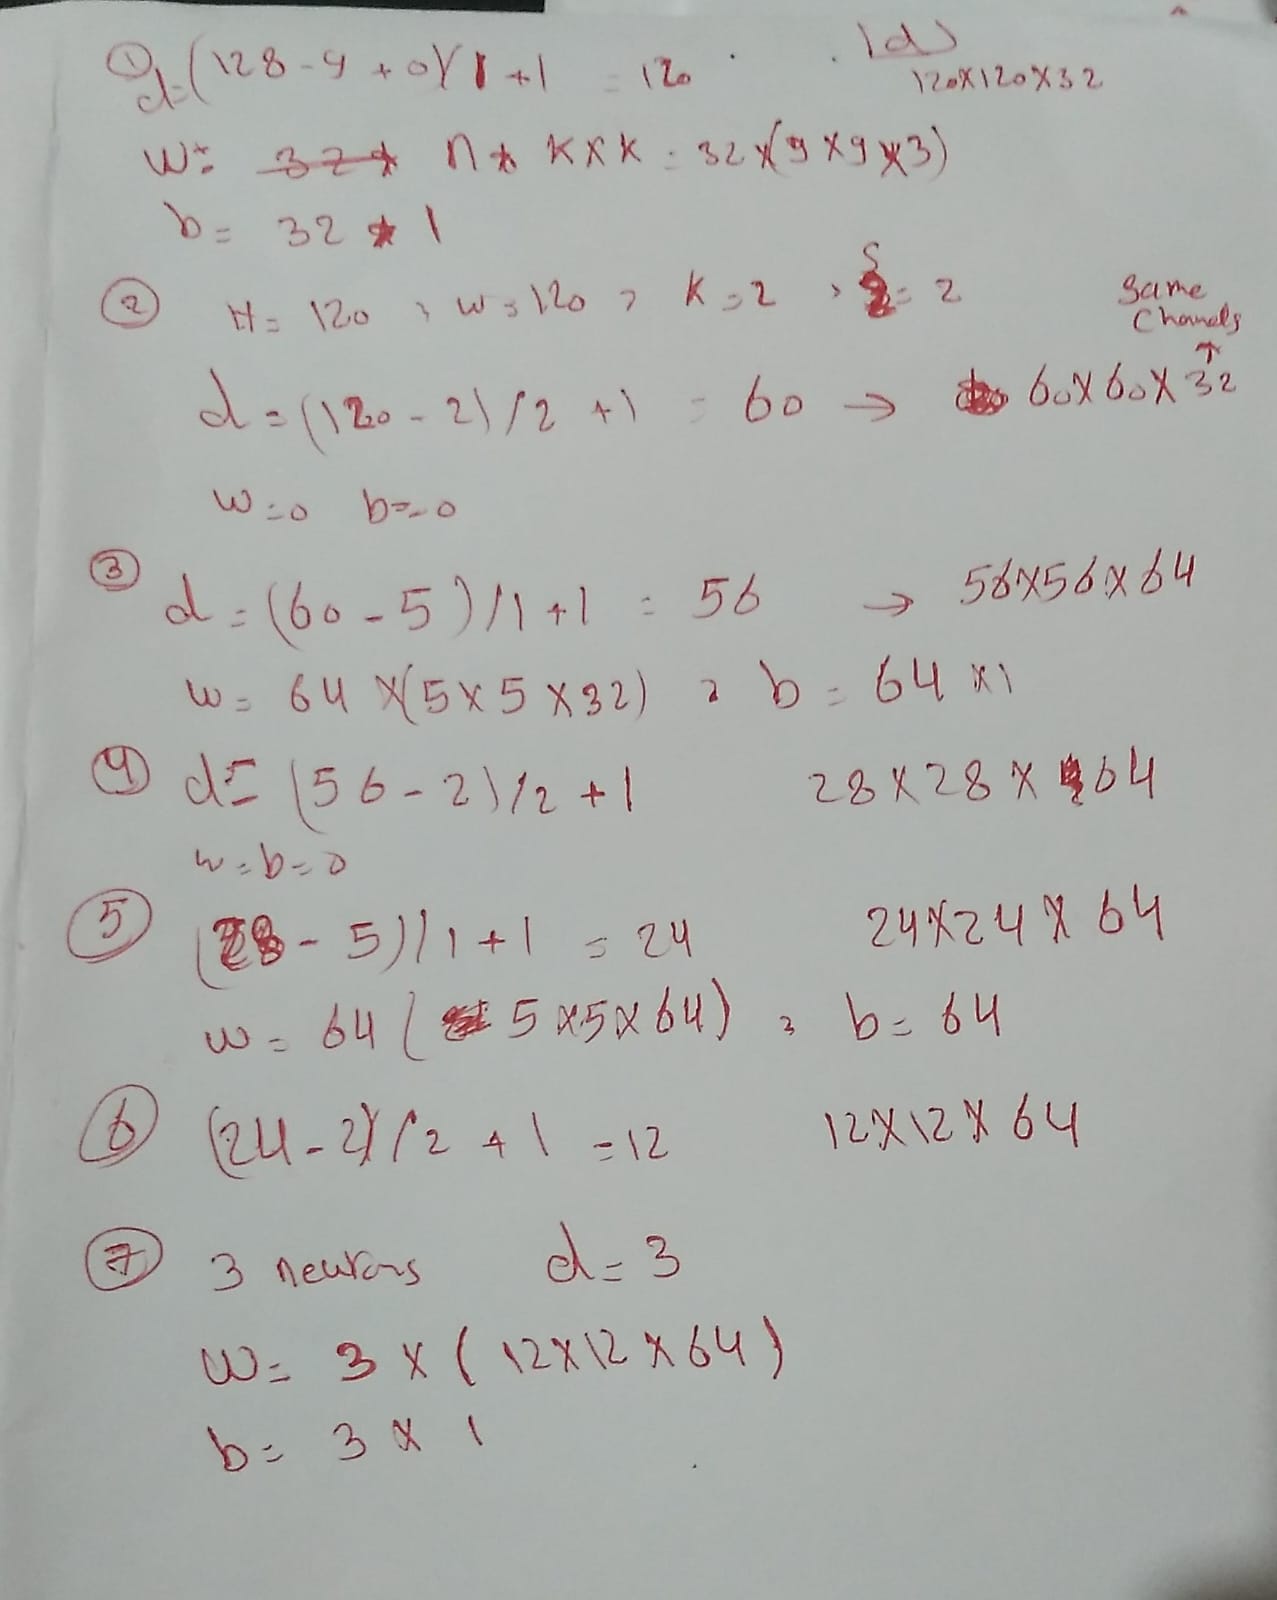 ① d=(128-9+0)/1+1 = 120 |d|
120x120x32
w= n* KxK = 32x(9x9x3)
b= 32 * 1
② H= 120 , w=120 , K=2 , S=2
same channels ↑
d=(120-2)/2 +1 = 60 → 60x60x32
w=0 b=0
③ d=(60-5)/1+1 = 56 → 56x56x64
w= 64 x(5x5x32) , b= 64 x1
④ d= (56-2)/2+1 28x28x64
w=b=0
⑤ (28-5)/1+1 = 24 24x24x64
w= 64(5x5x64) , b= 64
⑥ (24-2)/2 +1 =12 12x12x64
⑦ 3 neurons d=3
w= 3 x (12x12x64)
b= 3 x 1